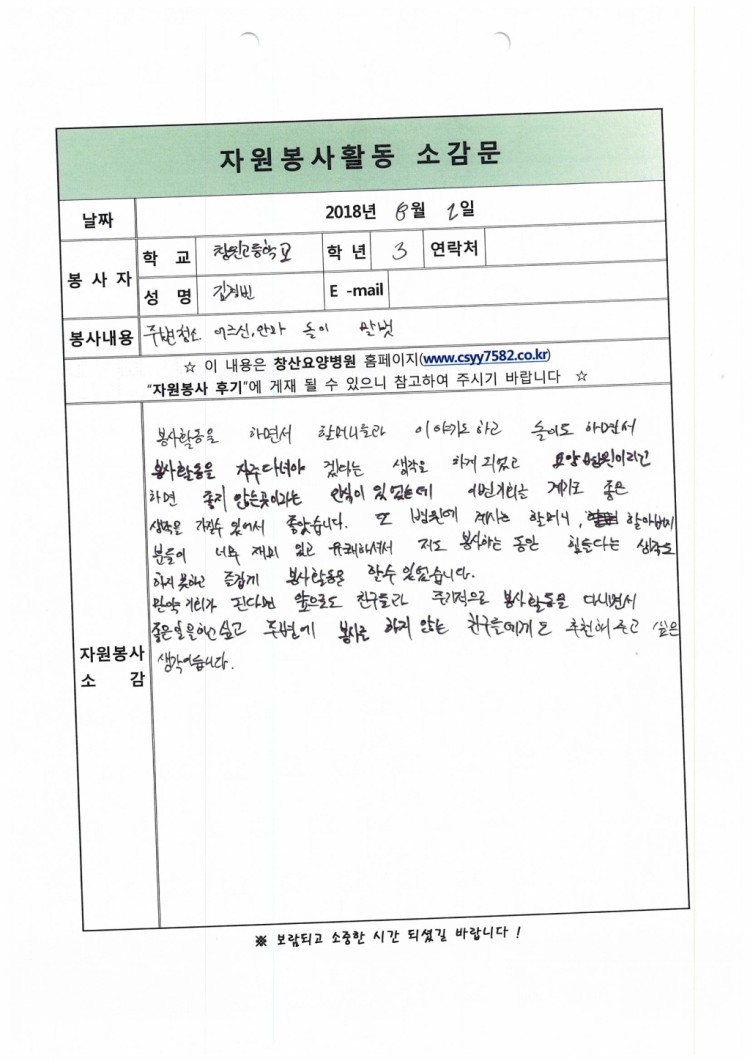 자원봉사활동 소감문
날짜 2018년 8월 2일
봉사자 학교 창원고등학교 학년 3 연락처
성명 김정빈 E-mail
봉사내용 주변청소 어르신, 안화 놀이 말벗
☆ 이 내용은 창산요양병원 홈페이지(www.csyy7582.co.kr)
"자원봉사 후기"에 게재 될 수 있으니 참고하여 주시기 바랍니다 ☆
자원봉사
소 감
봉사활동을 하면서 할머니들과 이야기도 하고 놀이도 하면서
봉사활동을 자주다녀야 겠다는 생각을 하게 되었고 요양병원이라고
하면 좋지 않은곳이라는 인식이 있었는데 이번계기로 좋은
생각을 가질수 있어서 좋았습니다. 또 병원에 계시는 할머니, 할아버지
분들이 너무 재미 있고 유쾌하셔서 저도 봉사하는 동안 힘들다는 생각도
하지 못하고 즐겁게 봉사활동을 할수 있었습니다.
만약 기회가 된다면 앞으로도 친구들과 주기적으로 봉사활동을 다니면서
좋은일을하고 싶고 주변에 봉사를 하지 않는 친구들에게도 추천해주고 싶은
생각이듭니다.
※ 보람되고 소중한 시간 되셨길 바랍니다 !